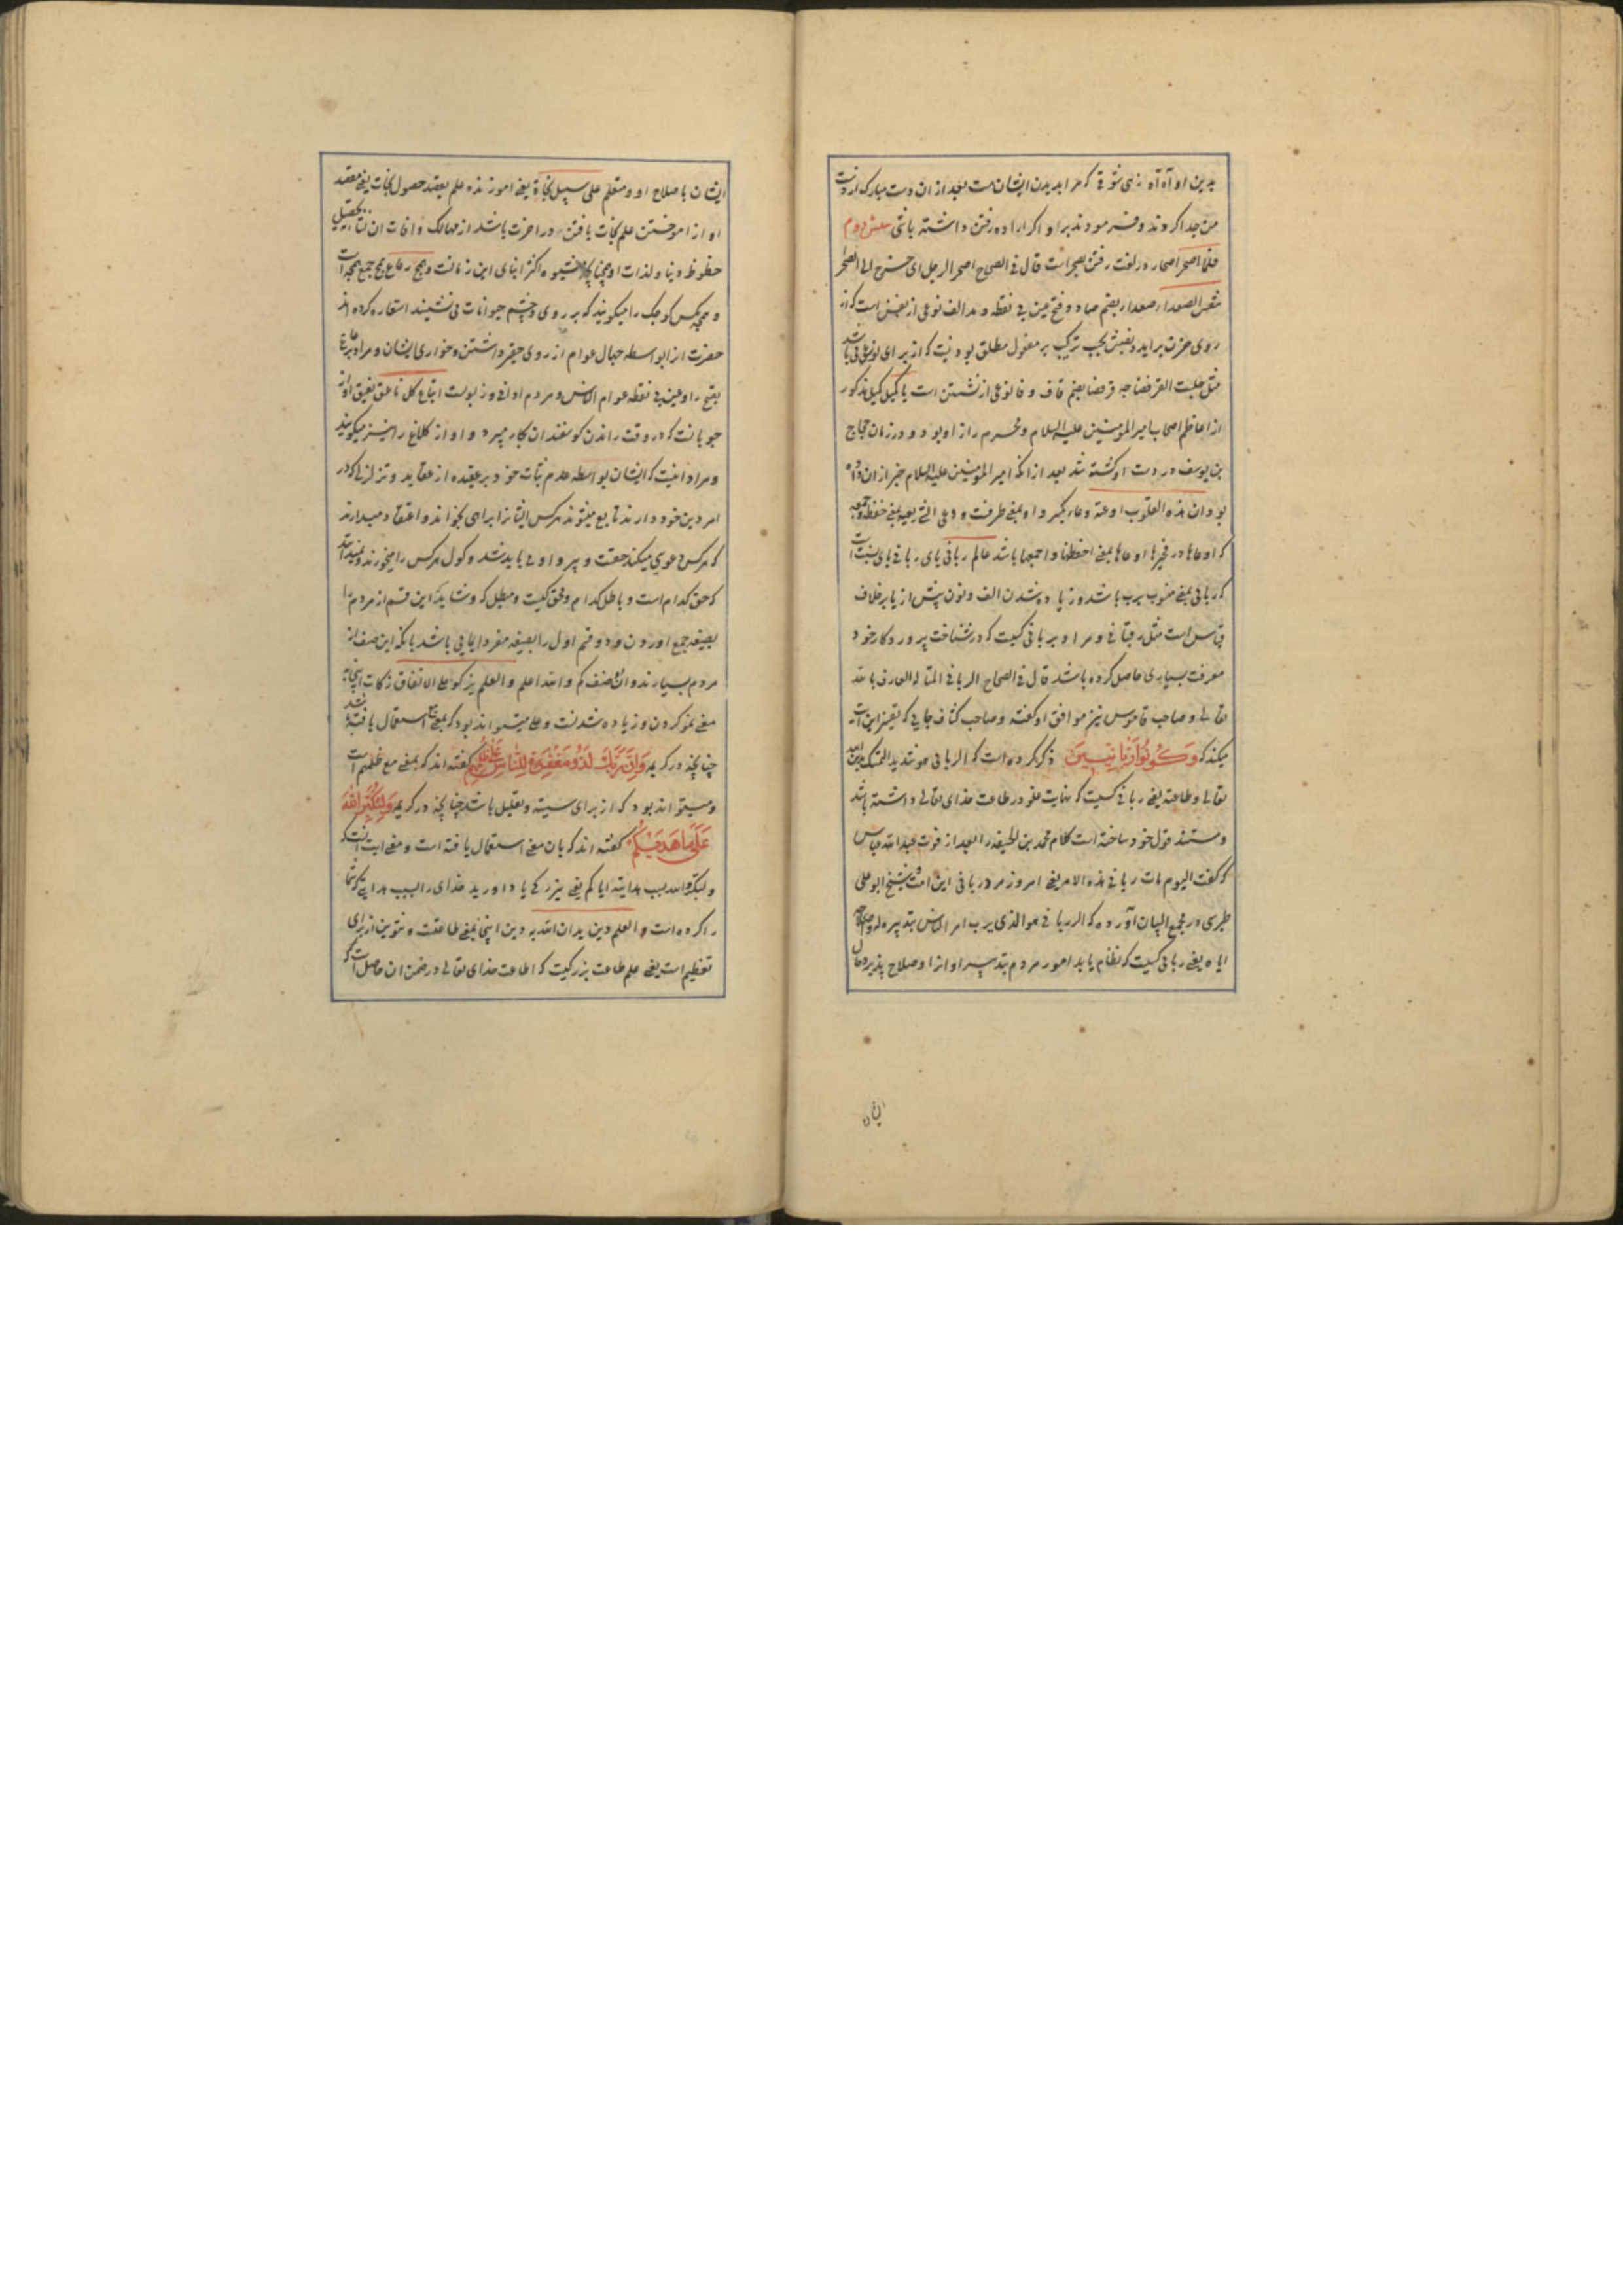 بدین او آه آه زهی شوقی که مرا بدیدن ایشانست بعد از آن دست مبارک از دست
من جدا کردند و فرمودند برو اگر اراده رفتن داشته باشی
فلما اصحر اصحار در لغت رفتن بصحراست قال فی الصحاح اصحر الرجل ای خرج الی الصحرا
تنفس الصعدا صعدا بضم صاد و فتح عین بی نقطه و مد الف نوعی از نفس است که از
روی حزن براید و نفس بحسب ترکیب مفعول مطلق بودنیست که از برای نوع می باشد
مثل جلست القرفصا چه قرفصا بضم قاف و فا نوعی از نشستن است یا کمیل کمیل مذکور
از اعاظم اصحاب امیر المومنین علیه السلام و محرم راز او بود و در زمان حجاج
بن یوسف در دست او کشته شد بعد از انکه امیر المومنین علیه السلام خبر از ان داده
بود ان هذه القلوب اوعیة وعا بکسر واو بمعنی ظرفست و وعی الشی یعیه بمعنی حفظه و جمعه
که اوعاها در فخیرها اوعاها بمعنی احفظها و اجمعها باشد عالم ربانی یای ربانی یای نسبت است
که ربانی بمعنی منسوب برب باشد و زیاده شدن الف و نون پیش از یا بر خلاف
قیاس است مثل رقبانی و مراد بربانی کسیست که در شناخت پروردکار خود
معرفت بسیاری حاصل کرده باشد قال فی الصحاح الربانی المتاله العارف بالله
تعالی و صاحب قاموس نیز موافق او کفته و صاحب کشاف جایی که تفسیر این آیت
میکند که وَكُونُوا رَبَّانِيِّينَ ذکر کرده است که الربانی هو شدید التمسک بدین الله
تعالی و طاعته یعنی ربانی کسیست که نهایت غلو در طاعت خدای تعالی داشته باشد
و مستند قول خود ساخته است کلام محمد بن الحنفیه را بعد از فوت عبد الله عباس
که کفت الیوم مات ربانی هذه الامه یعنی امروز مرد ربانی این امت و شیخ ابو علی
طبرسی در مجمع البیان آورده که الربانی هو الذی یرب امر الناس بتدبیره له و اصلاحه
ایاه یعنی ربانی کسیست که نظام یابد امور مردم بتدبیر او از او صلاح پذیرد حال
ایشان
ایشان باصلاح او و متعلم علی سبیل نجاة یعنی اموزنده علم بقصد حصول نجات یعنی مقصد
او از اموختن علم نجات یافتن در اخرت باشد از مهالک و افات ان نه تحصیل
حظوظ دنیا و لذات او چنانچه شیوه اکثر ابنای این زمانست و همج رعاع همج جمع همجه است
و همجه مکس کوچک را میکویند که بر روی و چشم حیوانات می نشیند استعاره کرده اند
حضرت از ابواسطه جهال عوام از روی حقیر داشتن و خواری ایشان و مراد برعاع
بفتح را و عین بی نقطه عوام الناس و مردم ادانی و زبونست اتباع کل ناعق نعیق اواز
چوپانست که در وقت راندن کوسفندان بکار میبرد و اواز کلاغ را نیز میکویند
و مراد اینست که ایشان بواسطه عدم ثبات خود بر عقیده از عقاید و تزلزلی که در
امر دین خود دارند تابع میشوند هر کس ایشانرا براهی بخواند و اعتقاد میدارند
که هر کس دعوی میکند حقست و پیرو او می باید شد و کول هر کس را میخورند و نمیدانند
که حق کدام است و باطل کدام و محق کیست و مبطل که و شاید که این قسم از مردم را
بصیغه جمع اوردن و دو قسم اول را بصیغه مفرد ایمایی باشد بانکه این صنف از
مردم بسیارند و ان دو صنف کم و الله اعلم و العلم یزکو علی الانفاق زکات اینجا به
معنی نمو کردن و زیاده شدنست و علی میتواند بود که بمعنی مع استعمال یافته باشد
چنانچه در کریمه وَاِنَّ رَبَّكَ لَذُو مَغْفِرَةٍ لِلنَّاسِ عَلَى ظُلْمِهِمْ کفته اند که بمعنی مع ظلمهم است
و میتواند بود که از برای سببیت و تعلیل باشد چنانچه در کریمه وَلِتُكَبِّرُوا اللّٰهَ
عَلٰى مَا هَدٰيكُمْ کفته اند که بان معنی استعمال یافته است و معنی ایت انست که
و لتکبروا الله بسبب هدایته ایاکم یعنی ببزرکی یاد اورید خدای را بسبب هدایتی که شما
را کرده است و العلم دین یدان الله به دین اینجا بمعنی طاعتست و تنوین از برای
تعظیم است یعنی علم طاعت بزرکیست که اطاعت خدای تعالی در ضمن ان حاصل است که